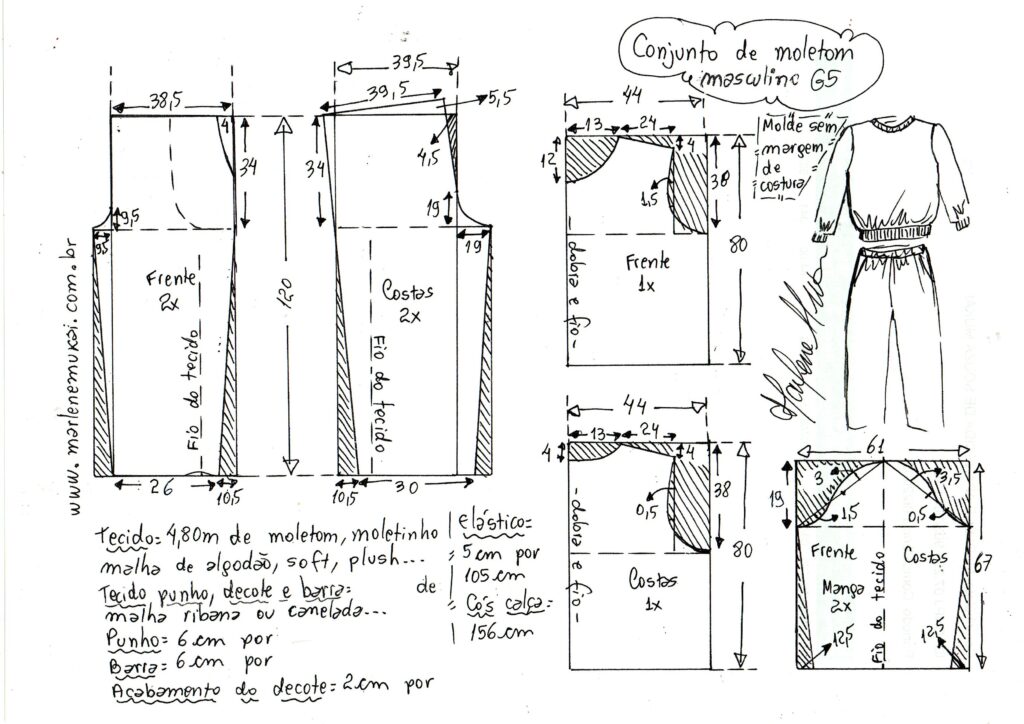 Conjunto de moletom
masculino G5
Molde sem
margem
de
costura
www.marlenemukai.com.br
38,5
4
34
9,5
9,5
Frente
2x
Fio do tecido
26
10,5
120
39,5
39,5
5,5
4,5
34
19
19
Costas
2x
Fio do tecido
10,5
30
44
13
24
12
4
1,5
38
80
Frente
1x
dobra e fio
44
13
24
4
4
0,5
38
80
Costas
1x
-dobra e fio-
61
19
3
3,5
1,5
0,5
Frente
Costas
67
Manga
2x
Fio do tecido
12,5
12,5
Tecido= 4,80m de moletom, moletinho
malha de algodão, soft, plush...
Tecido punho, decote e barra= de
malha ribana ou canelada...
Punho= 6cm por
Barra= 6cm por
Acabamento do decote= 2cm por
elástico=
5cm por
105cm
Cós calça=
156cm